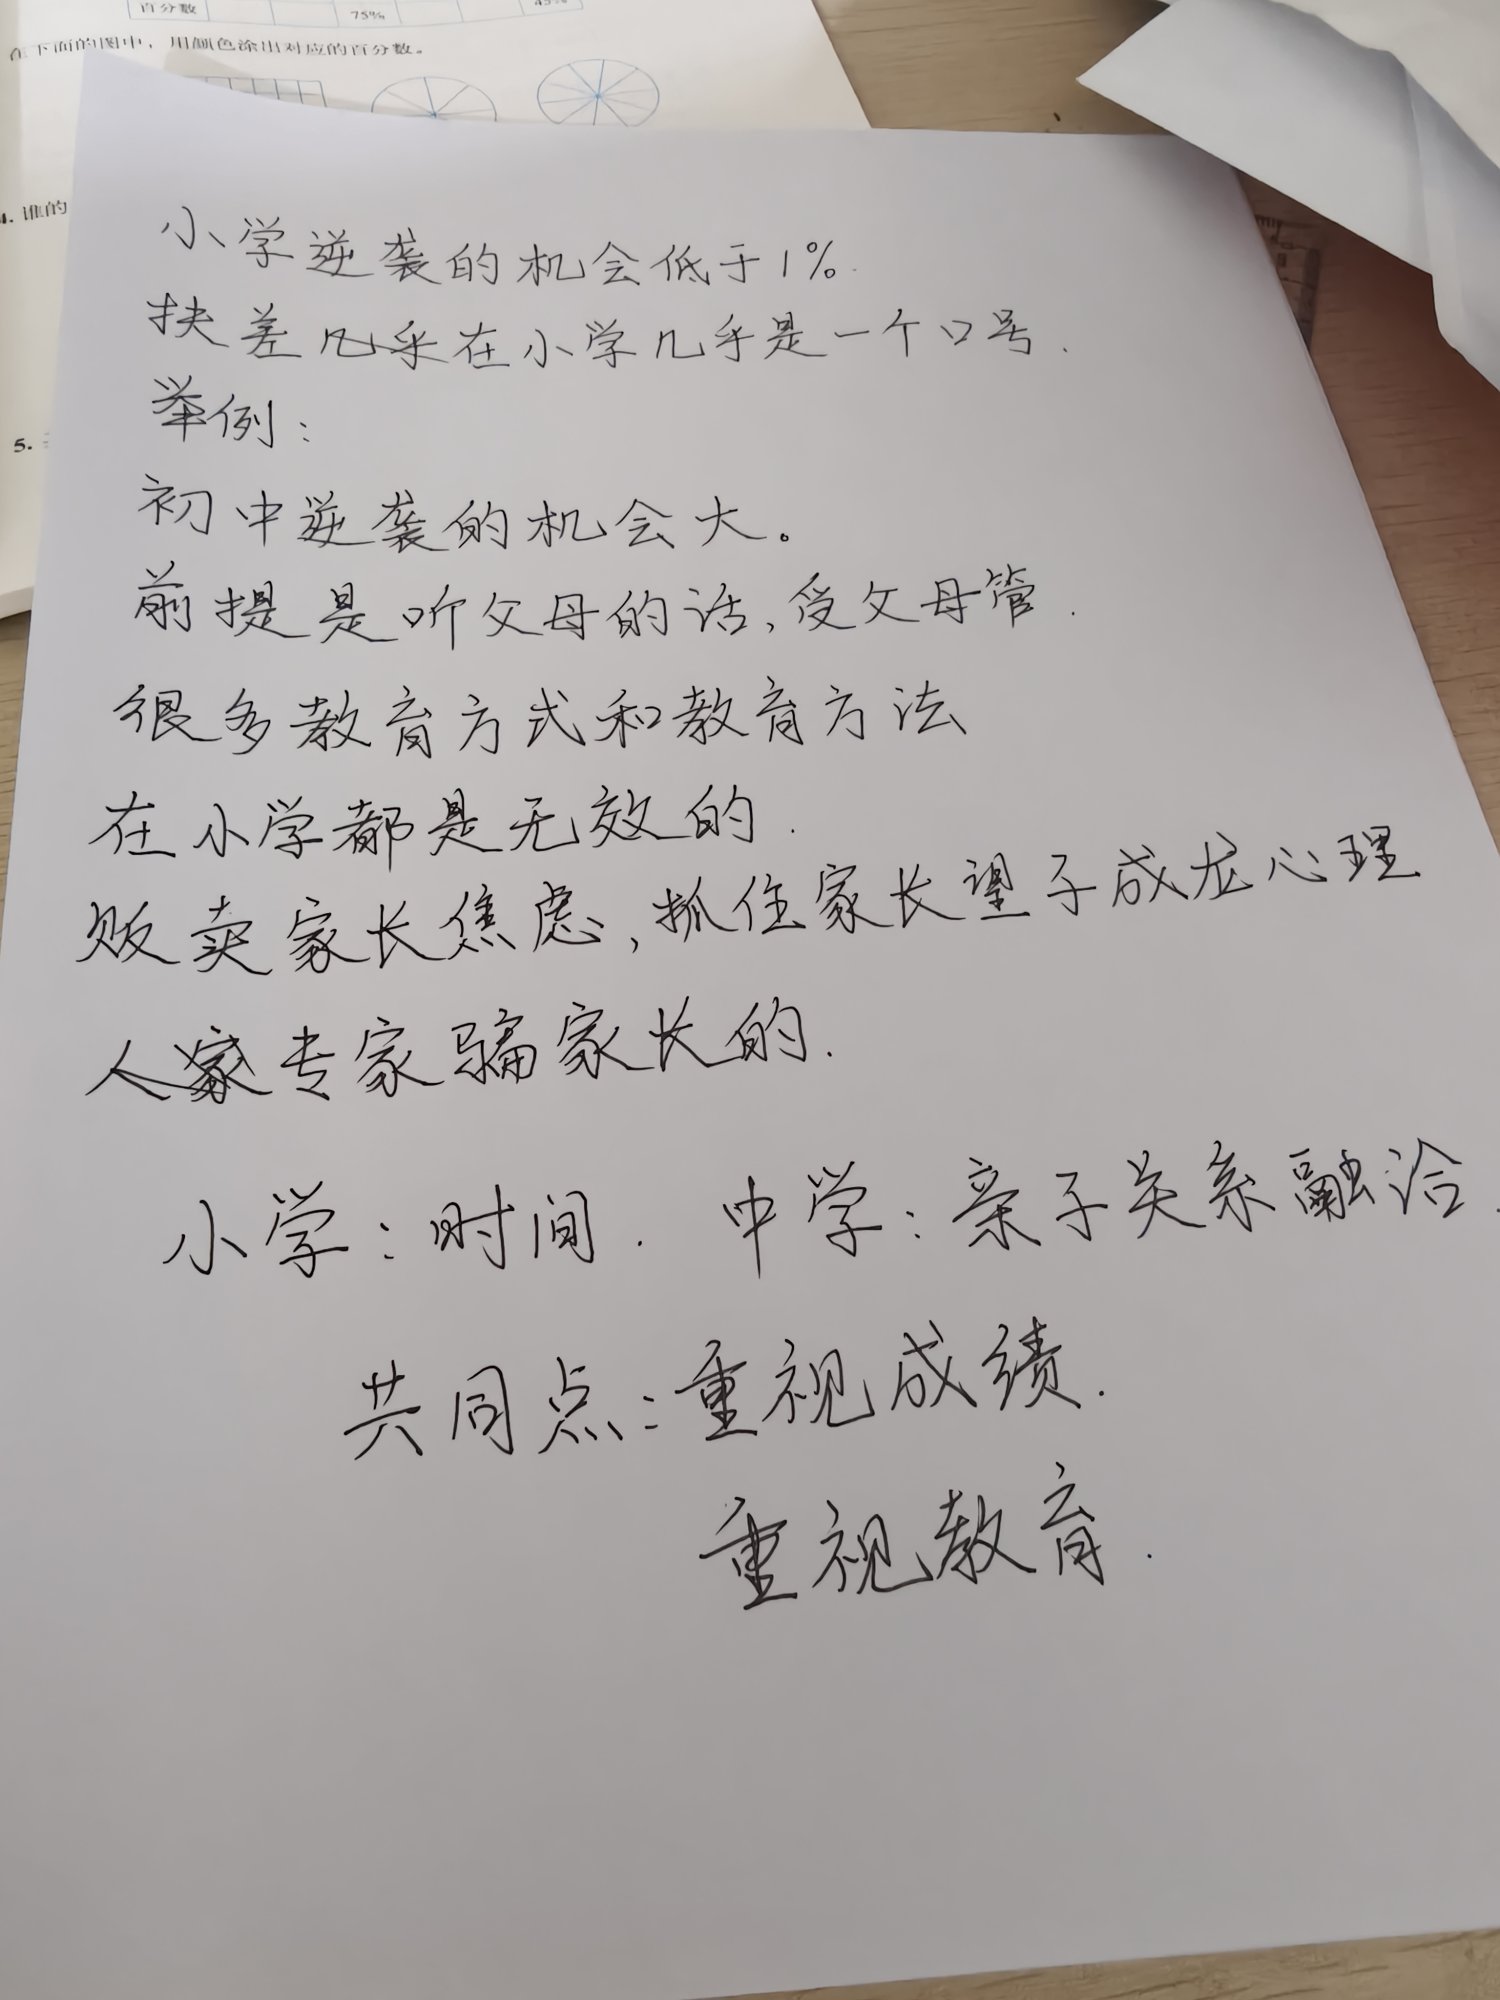 百分数 75% 45%
在下面的图中，用颜色涂出对应的百分数。
4. 谁的
5.
小学逆袭的机会低于1%.
扶差几乎在小学几乎是一个口号.
举例：
初中逆袭的机会大。
前提是听父母的话，受父母管.
很多教育方式和教育方法
在小学都是无效的.
贩卖家长焦虑，抓住家长望子成龙心理
人家专家骗家长的.
小学：时间. 中学：亲子关系融洽.
共同点：重视成绩.
重视教育.